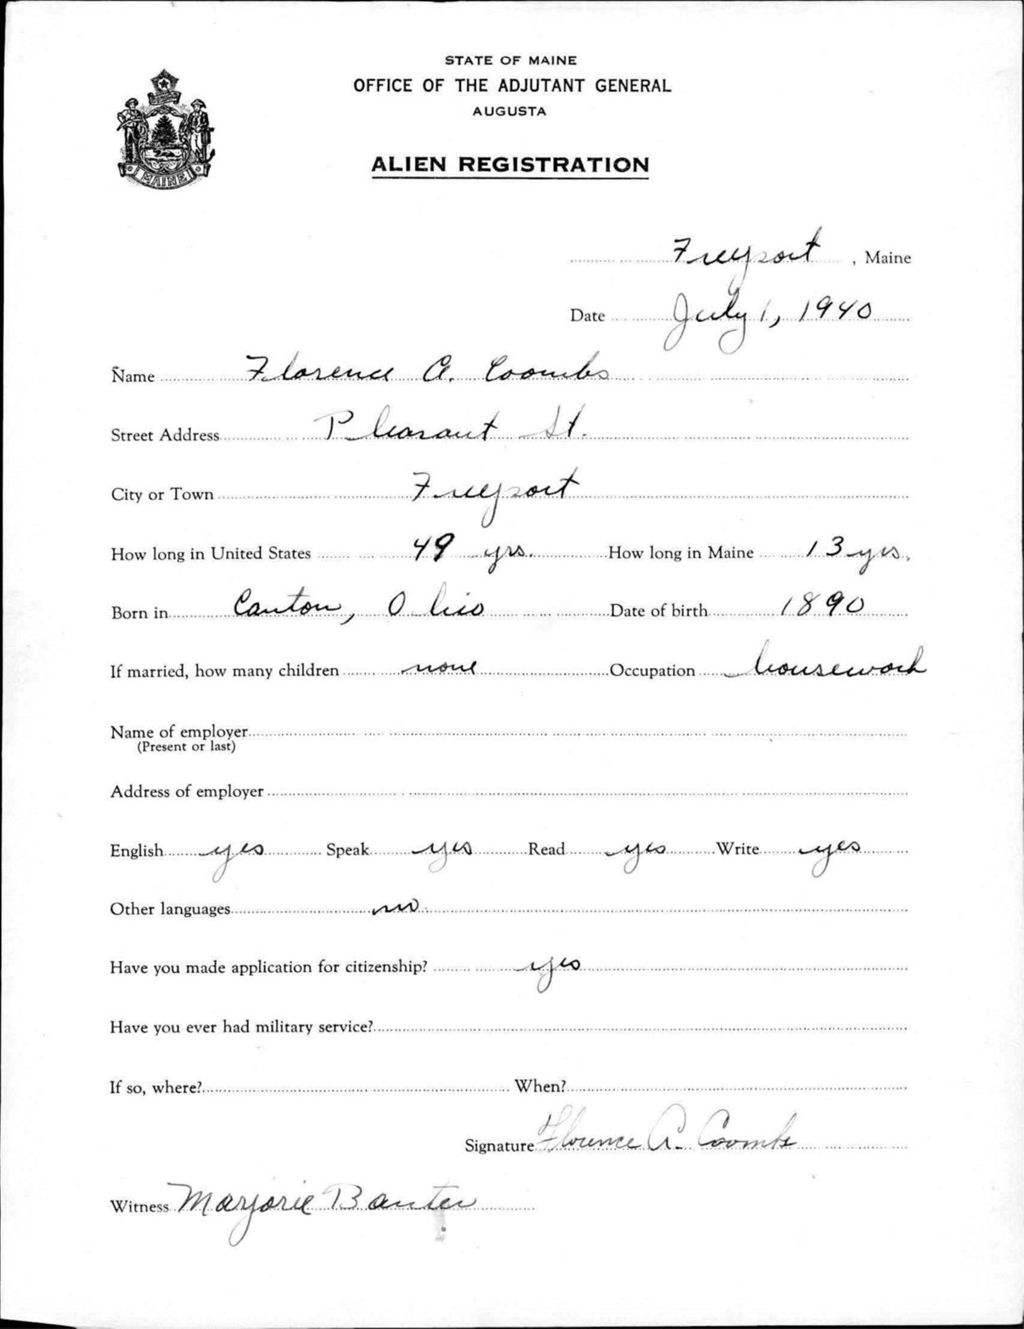 STATE OF MAINE
OFFICE OF THE ADJUTANT GENERAL
AUGUSTA
MAINE
ALIEN REGISTRATION
Freeport, Maine
Date July 1, 1940
Name Florence A. Coombs
Street Address Pleasant St.
City or Town Freeport
How long in United States 49 yrs. How long in Maine 13 yrs.
Born in Canton, Ohio Date of birth 1890
If married, how many children none Occupation housework
Name of employer
(Present or last)
Address of employer
English yes Speak yes Read yes Write yes
Other languages no
Have you made application for citizenship? yes
Have you ever had military service?
If so, where? When?
Signature Florence A. Coombs
Witness Marjorie